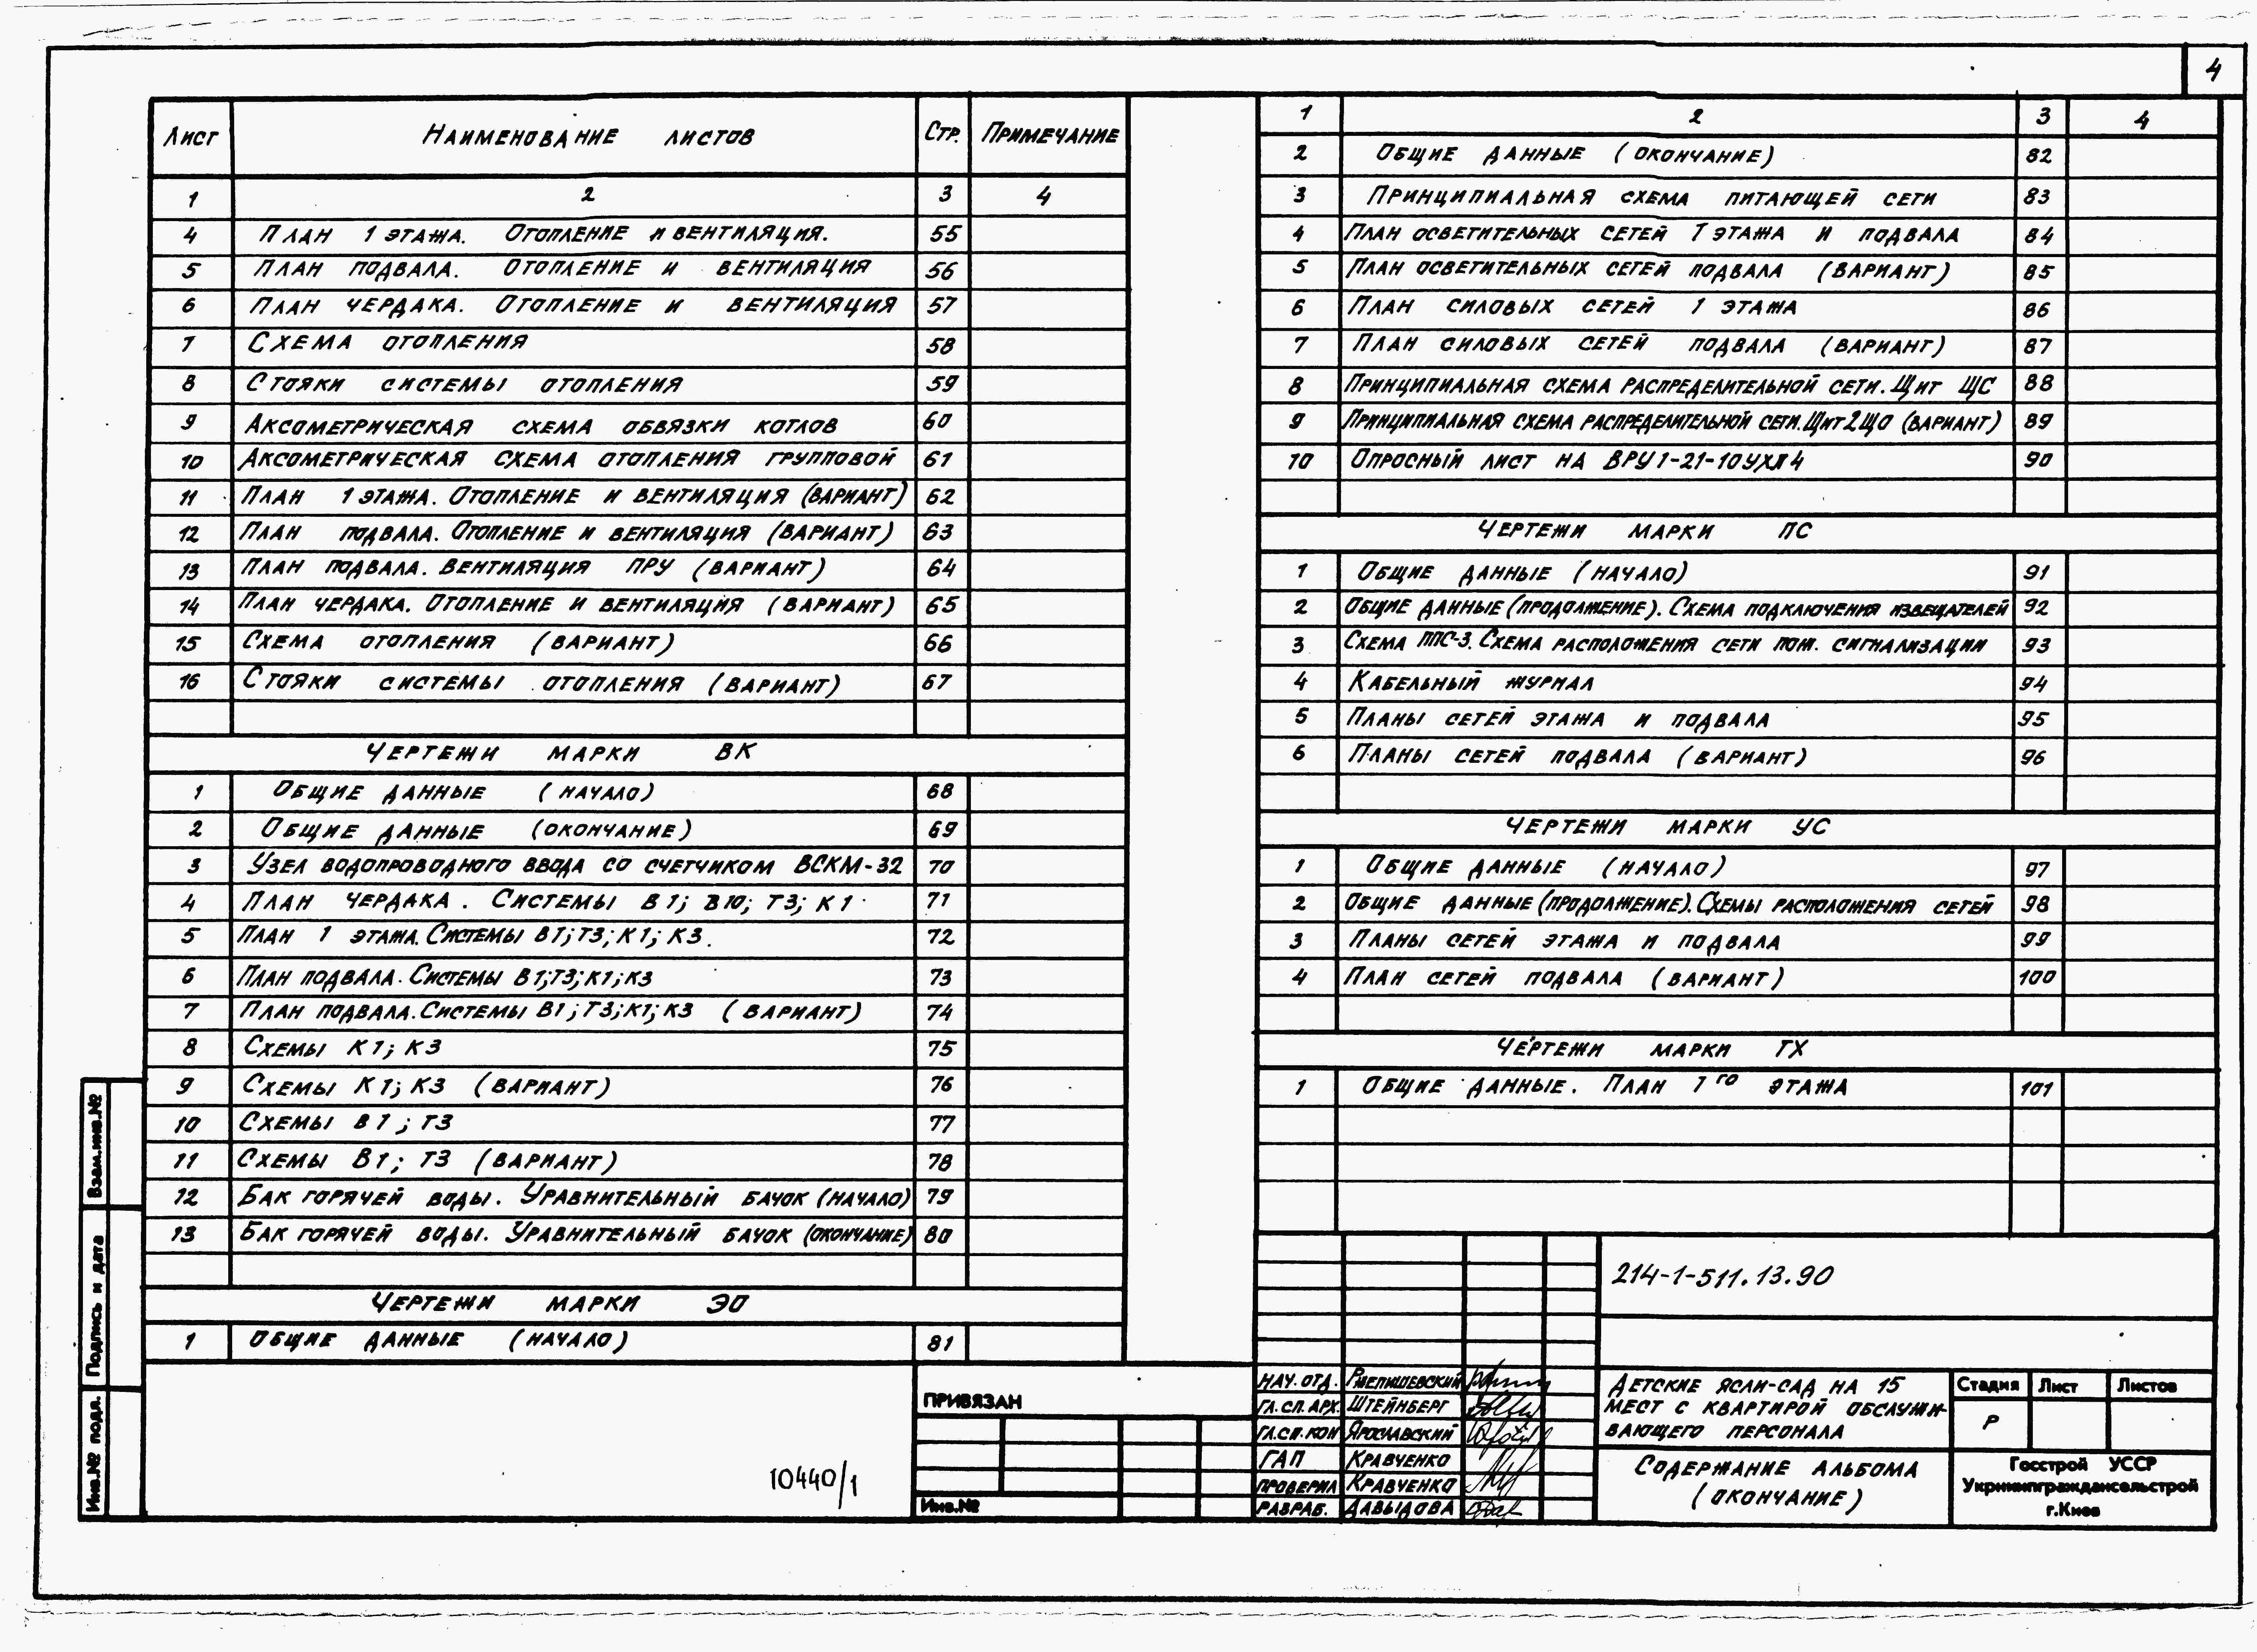 4
Лист Наименование листов Стр. Примечание
1 2 3 4
4 План 1 этажа. Отопление и вентиляция. 55
5 План подвала. Отопление и вентиляция 56
6 План чердака. Отопление и вентиляция 57
7 Схема отопления 58
8 Стояки системы отопления 59
9 Аксометрическая схема обвязки котлов 60
10 Аксометрическая схема отопления групповой 61
11 План 1 этажа. Отопление и вентиляция (вариант) 62
12 План подвала. Отопление и вентиляция (вариант) 63
13 План подвала. Вентиляция ПРУ (вариант) 64
14 План чердака. Отопление и вентиляция (вариант) 65
15 Схема отопления (вариант) 66
16 Стояки системы отопления (вариант) 67
Чертежи марки ВК
1 Общие данные (начало) 68
2 Общие данные (окончание) 69
3 Узел водопроводного ввода со счетчиком ВСКМ-32 70
4 План чердака. Системы В1; В10; Т3; К1 71
5 План 1 этажа. Системы В1; Т3; К1; К3. 72
6 План подвала. Системы В1; Т3; К1; К3 73
7 План подвала. Системы В1; Т3; К1; К3 (вариант) 74
8 Схемы К1; К3 75
9 Схемы К1; К3 (вариант) 76
10 Схемы В1; Т3 77
11 Схемы В1; Т3 (вариант) 78
12 Бак горячей воды. Уравнительный бачок (начало) 79
13 Бак горячей воды. Уравнительный бачок (окончание) 80
Чертежи марки ЭО
1 Общие данные (начало) 81
1 2 3 4
2 Общие данные (окончание) 82
3 Принципиальная схема питающей сети 83
4 План осветительных сетей 1 этажа и подвала 84
5 План осветительных сетей подвала (вариант) 85
6 План силовых сетей 1 этажа 86
7 План силовых сетей подвала (вариант) 87
8 Принципиальная схема распределительной сети. Щит ЩС 88
9 Принципиальная схема распределительной сети. Щит 2ЩО (вариант) 89
10 Опросный лист на ВРУ1-21-10УХЛ4 90
Чертежи марки ПС
1 Общие данные (начало) 91
2 Общие данные (продолжение). Схема подключения извещателей 92
3 Схема ППС-3. Схема расположения сети пож. сигнализации 93
4 Кабельный журнал 94
5 Планы сетей этажа и подвала 95
6 Планы сетей подвала (вариант) 96
Чертежи марки УС
1 Общие данные (начало) 97
2 Общие данные (продолжение). Схемы расположения сетей 98
3 Планы сетей этажа и подвала 99
4 План сетей подвала (вариант) 100
Чертежи марки ТХ
1 Общие данные. План 1го этажа 101
214-1-511.13.90
Нач. отд.
Гл. сп. арх. Штейнберг
Гл. сп. кон Ярославский
ГАП Кравченко
Проверил Кравченко
Разраб. Давыдова
Детские ясли-сад на 15
мест с квартирой обслужи-
вающего персонала
Стадия Лист Листов
Р
Содержание альбома
(окончание)
Госстрой УССР
Укрниипграждансельстрой
г.Киев
Привязан
Инв.№
10440/1
Взам.инв.№
Подпись и дата
Инв.№ подл.